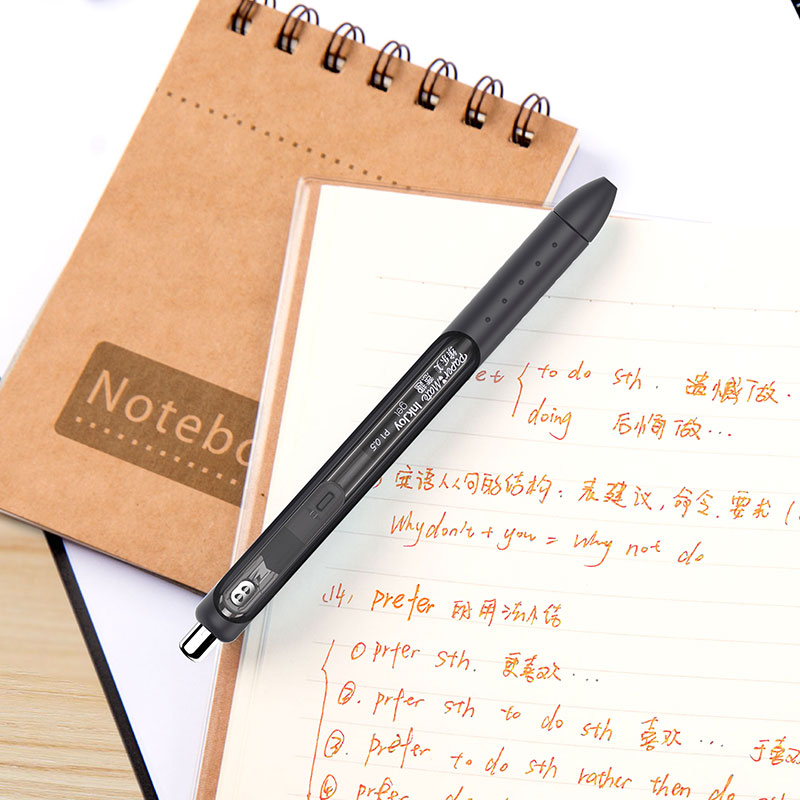 Notebo
Paper Mate InkJoy
gel
P1 0.5
et { to do sth. 遗憾做.
doing 后悔做...
实语人问的结构: 表建议, 命令. 要求 (
Why don't + you = why not do
14, prefer 的用法小结
① prfer sth. 更喜欢...
②. prfer sth to do sth 喜欢...
③. prefer to do sth rather then do sth
④ prefer